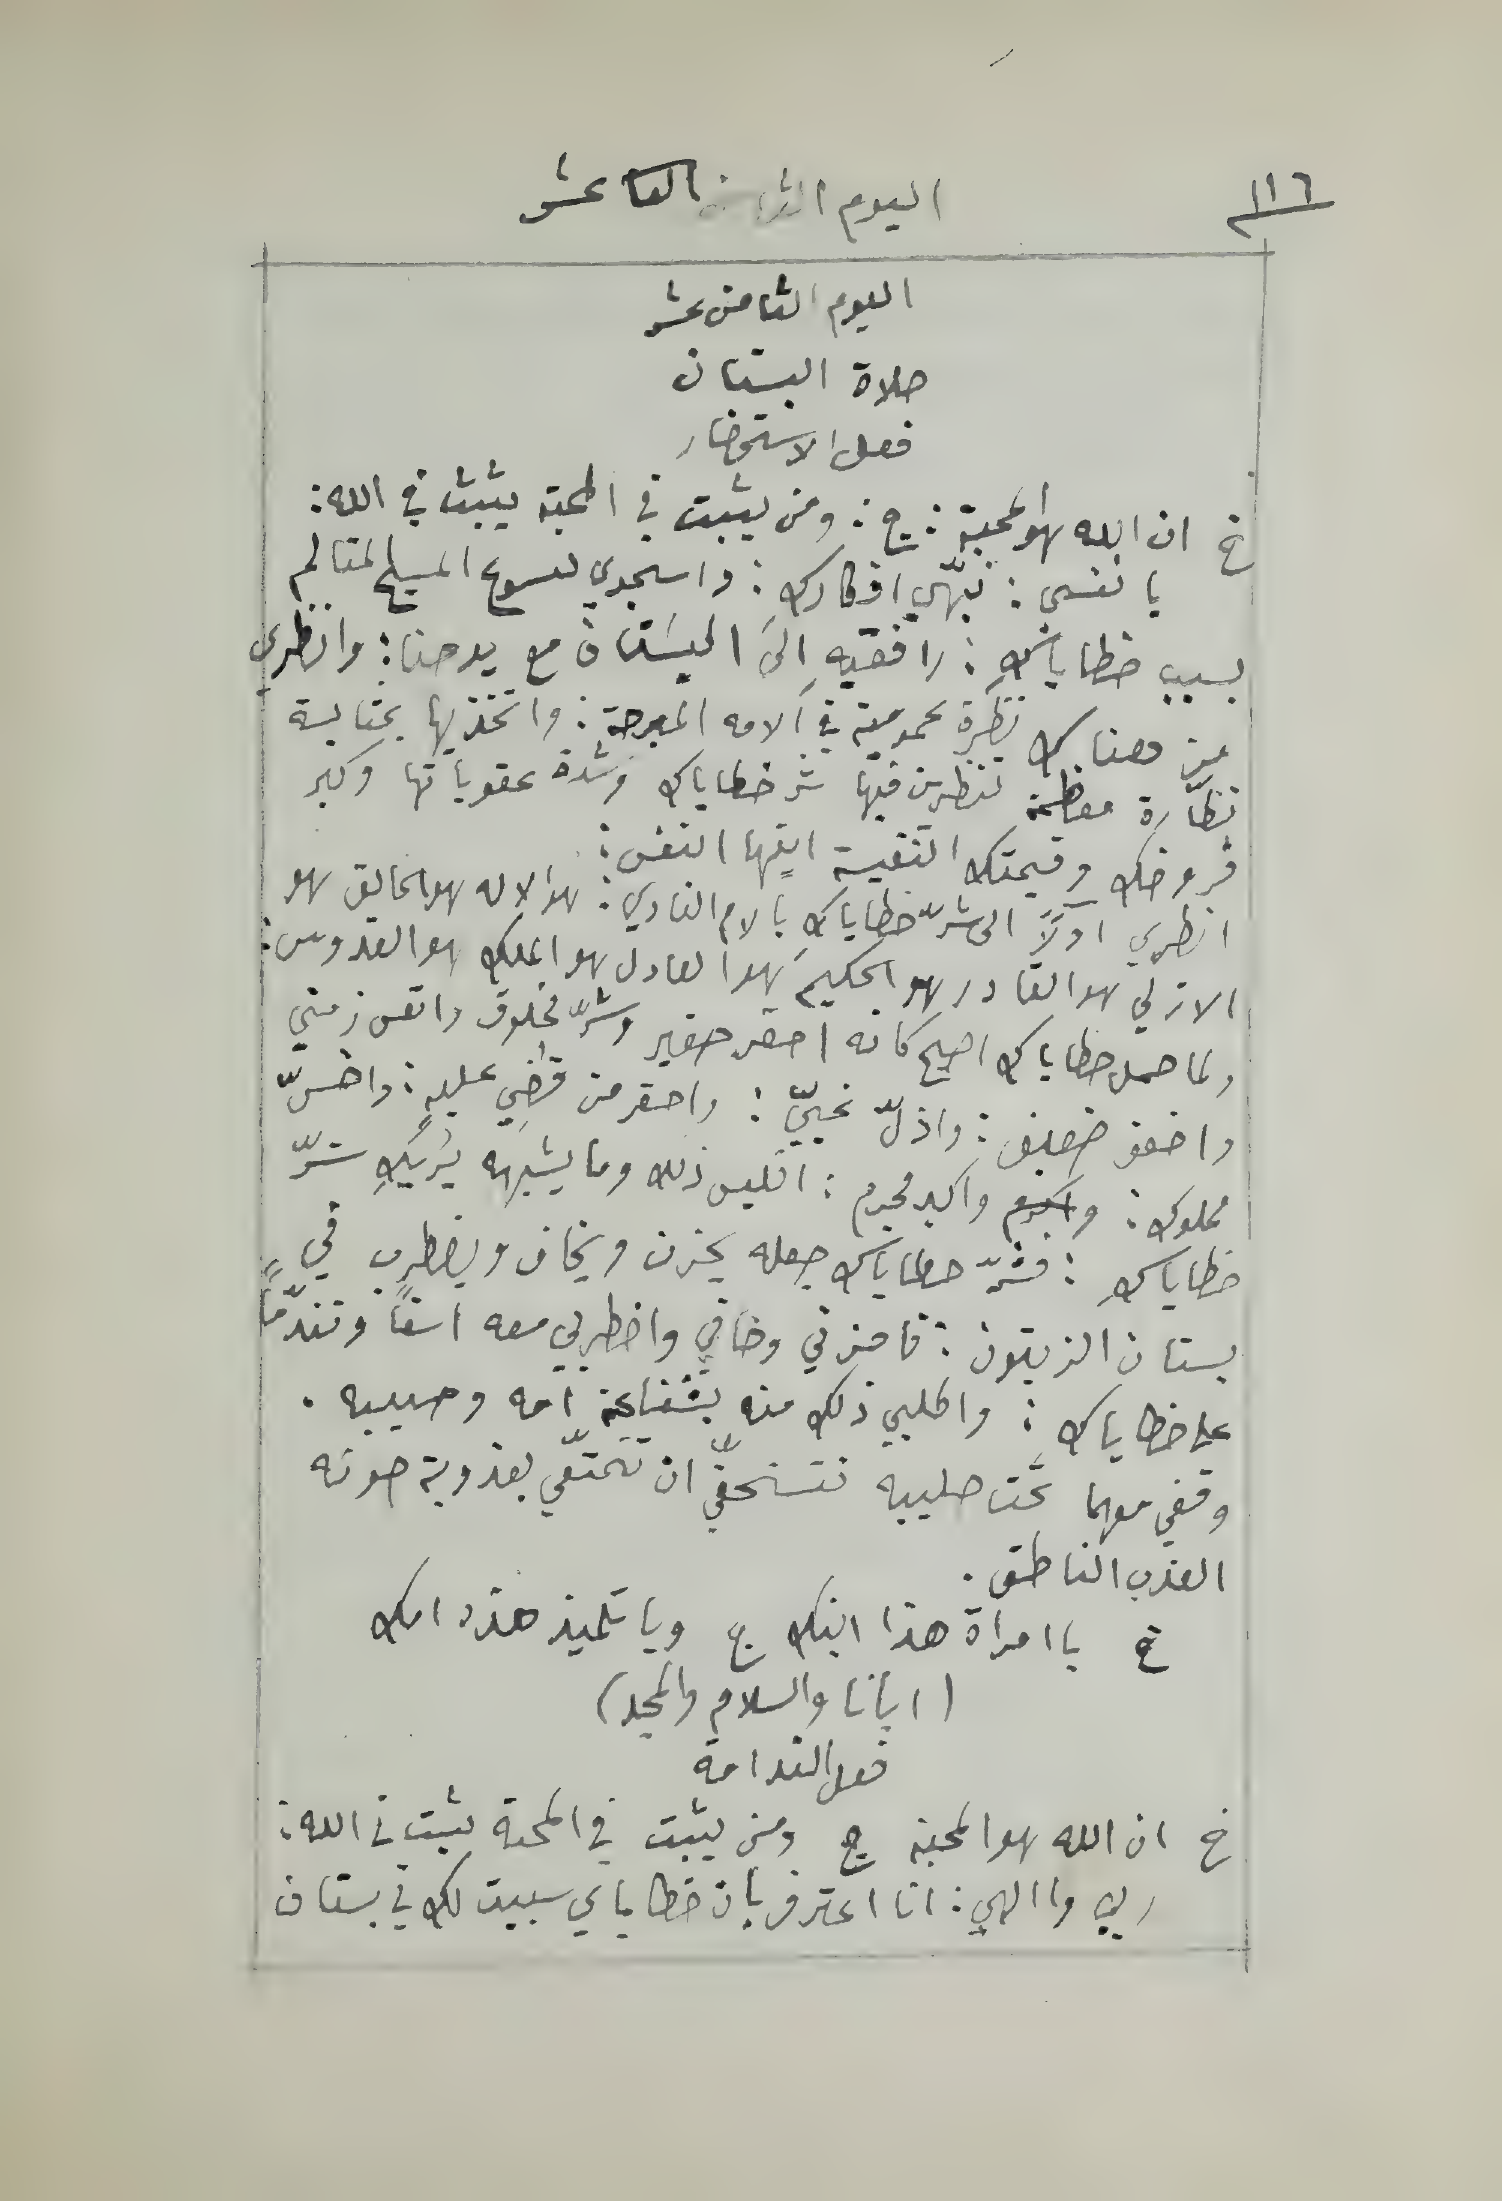 ١١٦
اليوم الثامن عشر
اليوم الثامن عشر
صلاة البستان
فعل الاستحضار
خ ان الله هو المحبة : ج : ومن يثبت في المحبة يثبت في الله :
يا نفسي : نبّهي افكارك : واسجدي ليسوع المسيح المتالم
بسبب خطاياكِ : رافقيهِ الى البستان مع يوحنا : وانظري
من هناك نظرة عمومية في آلامه المبرحة : واتخذيها بمثابة
نظّارة معظمة تنظرين فيها شر خطاياك وشدة عقوباتها وكبر
فروضك وقيمتك النفيسة ايتها النفس :
انظري اولاً الى شرّ خطاياكِ بالام الفادي : هو الاله هو الخالق هو
الازلي هو القادر هو الحكيم هو العادل هو الملك هو القدوس :
ولما حمل خطاياك اصبح كانه احقر صغير وشرّ مخلوق واتعس زمني
واضعف ضعيف : واذلّ نحييّ : واحقر من قضي عليهِ : واخسّ
مملوك : واكبر مجرم : اليس ذلك وما يشبهه يُريكِ شرّ
خطاياكِ : فشرّ خطاياك جعله يحزن ويخاف ويضطرب في
بستان الزيتون : فاحزني وخافي واضطربي معه اسفاً وتندّماً
على خطاياك : واطلبي ذلك منه بشفاعة امه وحبيبه .
وقفي معهما تحت صليبه فتستحقّي ان تتمتّعي بعذوبة صوته
العذب الناطق .
خ يا امراة هذا ابنك ج ويا تلميذ هذه امك
(ابانا والسلام والمجد)
فعل الندامة
خ ان الله هو المحبة ج ومن يثبت في المحبة يثبت في الله :
ربي والهي : انا اعترف بان خطاياي سببت لك في بستان